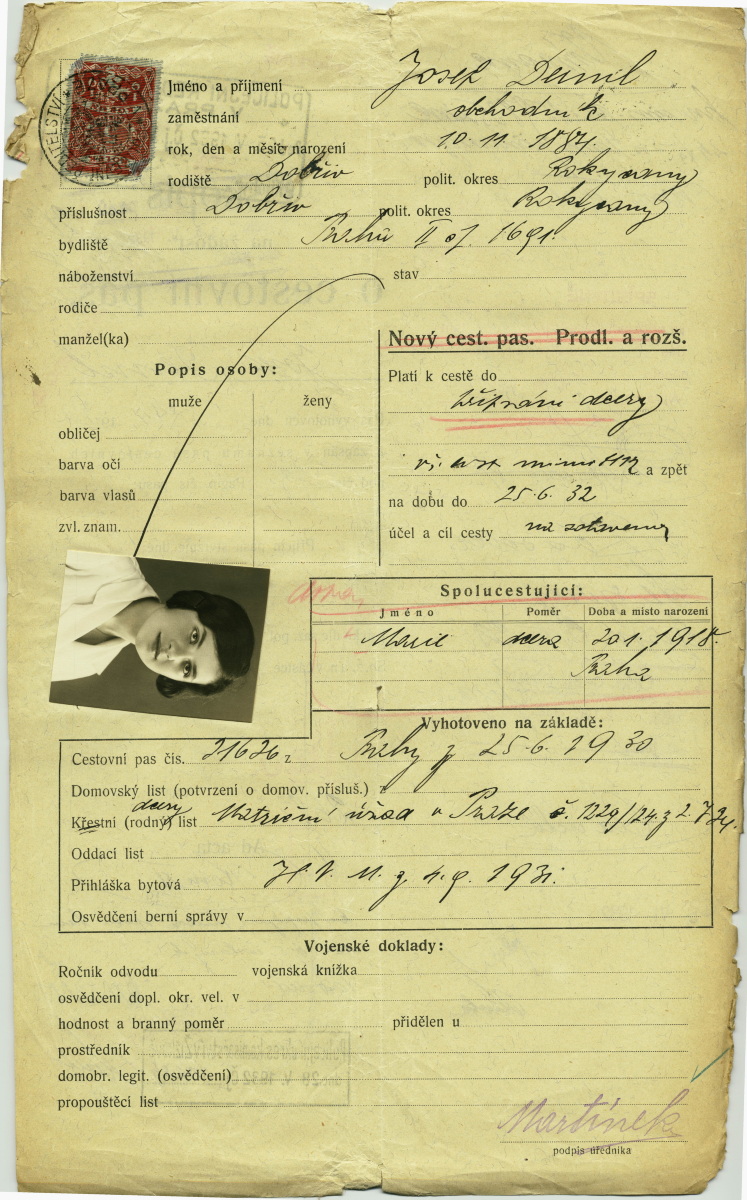 Jméno a příjmení Josef Deiml
zaměstnání obchodník
rok, den a měsíc narození 10. 11. 1884.
rodiště Dobřiv polit. okres Rokycany
příslušnost Dobřiv polit. okres Rokycany
bydliště Praha II čp. 1691.
náboženství stav
rodiče
manžel(ka)
Nový cest. pas. Prodl. a rozš.
Platí k cestě do
připsání dcery
a zpět
na dobu do 25.6. 32
účel a cíl cesty na zotavenou
Popis osoby:
muže ženy
obličej
barva očí
barva vlasů
zvl. znam.
Spolucestující:
Jméno Poměr Doba a místo narození
Marie dcera 20 1. 1918.
Praha
Vyhotoveno na základě:
Cestovní pas čís. 21626 Prahy z 25.6. 1930
Domovský list (potvrzení o domov. přísluš.) z
dcery
Křestní (rodný) list Matriční úřad v Praze č. 1229/24. z 2.7 24.
Oddací list
Přihláška bytová z 4.9. 1931.
Osvědčení berní správy v
Vojenské doklady:
Ročník odvodu vojenská knížka
osvědčení dopl. okr. vel. v
hodnost a branný poměr přidělen u
prostředník
domobr. legit. (osvědčení)
propouštěcí list
Martínek
podpis úředníka